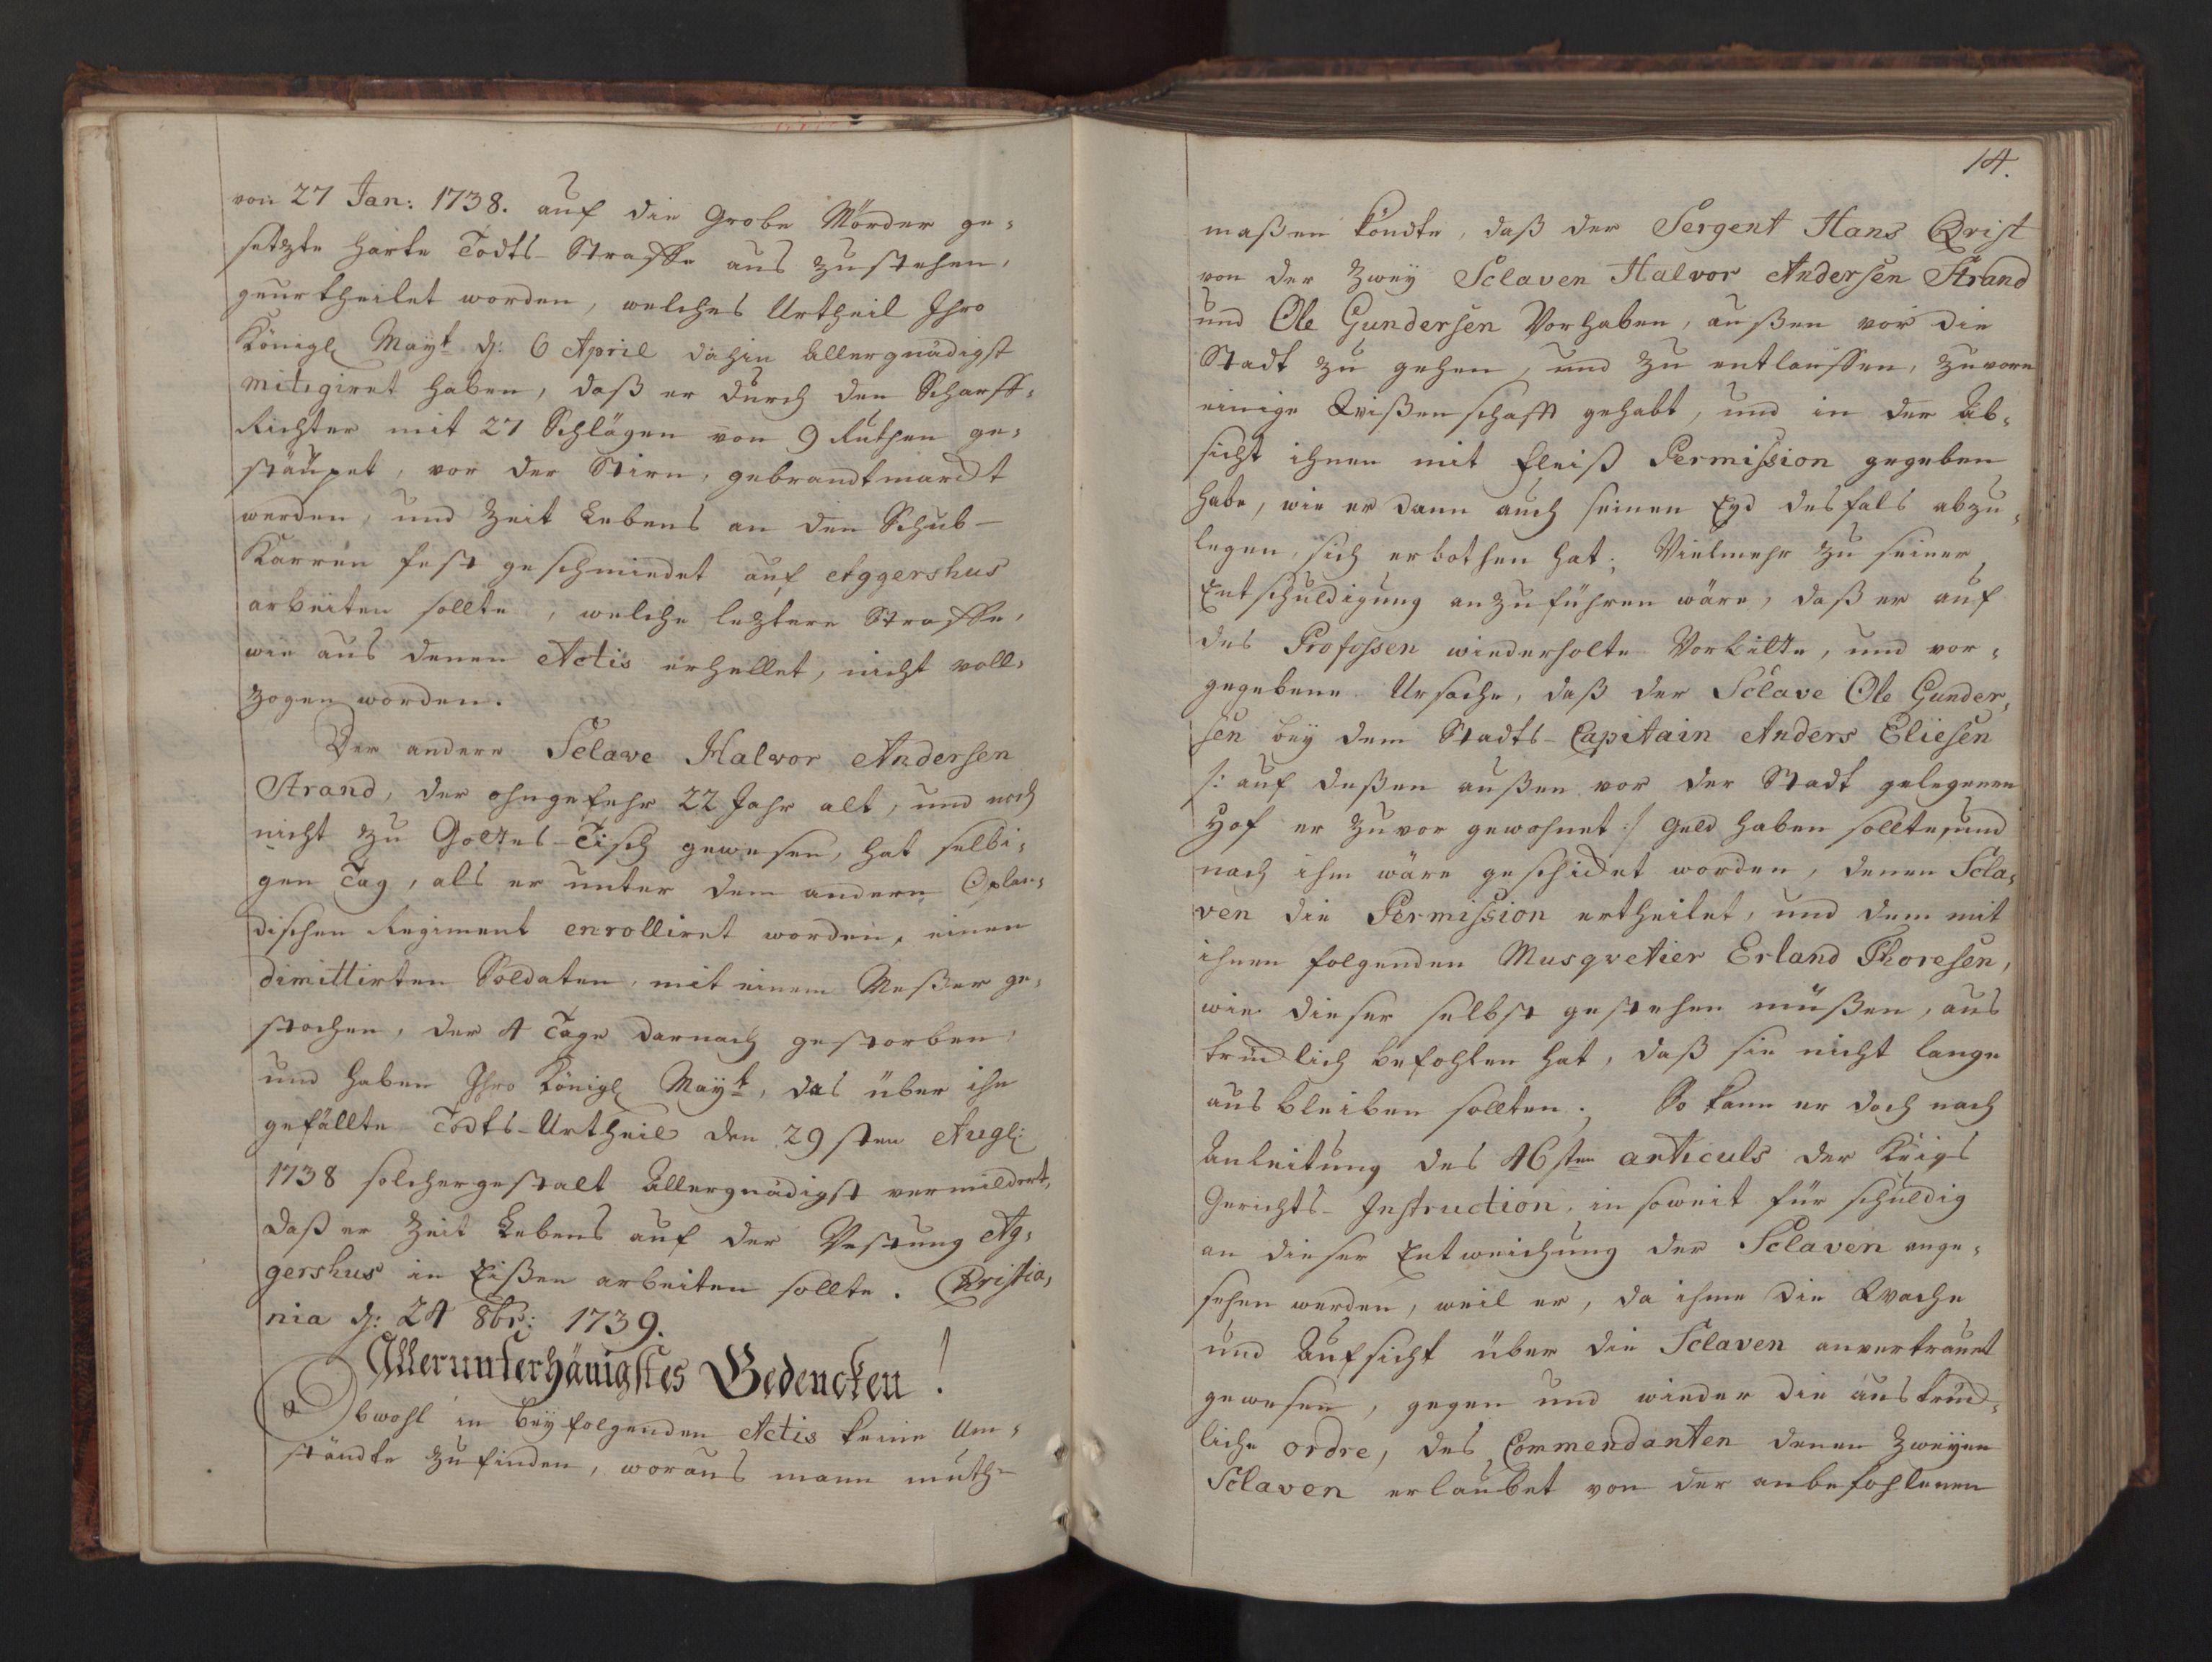 von 27 Jan: 1738. auf die Grobe Mörder ge-
setzte harte Todts-Straffe aus zustehen,
geurtheilet worden, welches Urtheil Ihro
Königl Mayt d: 6 April dahin Allergnädigst
mitigiret haben, daß er durch den Scharff-
Richter mit 27 Schlägen von 9 Ruthen ge-
stäupet, vor der Stirn, gebrandtmarckt
werden, und Zeit Lebens an den Schub-
Karren fest geschmiedet auf Aggershus
arbeiten sollte, welche leztere Straffe,
wie aus denen Actis erhellet, nicht voll-
zogen worden.
Der andere Sclave Halvor Andersen
Strand, der ohngefehr 22 Jahr alt, und noch
nicht zu Gottes-Tisch gewesen, hat selbi-
gen Tag, als er unter dem andern Oplan-
dischen Regiment enrolliret worden, einen
dimittirten Soldaten, mit einem Meßer ge-
stochen, der 4 Tage darnach gestorben,
und haben Ihro Königl Mayt, das über ihn
gefällte Todts-Urtheil den 29sten Aug:
1738 solchergestalt Allergnädigst vermildert,
daß er Zeit Lebens auf der Vestung Ag-
gershus in Eißen arbeiten sollte. Christia-
nia d: 24 8br: 1739.
Allerunterthänigstes Bedencken!
Obwohl in beyfolgenden Actis keine Um-
ständte zu finden, woraus mann muth-
14.
maßen köndte, daß der Sergent Hans Christ
von der zwey Sclaven Halvor Andersen Strand
und Ole Gundersen Vorhaben, außen vor die
Stadt zu gehen, und zu entlauffen, zuvorn
einige Wißenschafft gehabt, und in der Ab-
sicht ihnen mit fleiß Permission gegeben
habe, wie er dann auch seinen Eyd desfals abzu-
legen, sich erbothen hat; Vielmehr zu seiner
Entschuldigung anzuführen wäre, daß er auf
des Profossen wiederholte Vorbitte, und vor-
gegebene Ursache, daß der Sclave Ole Gunder-
sen bey dem Stadts-Capitain Anders Eliesen
/: auf deßen außen vor der Stadt gelegenen
Hof er zuvor gewohnet :/ Geld haben sollte, und
nach ihm wäre geschicket worden, denen Scla-
ven die Permission ertheilet, und dem mit
ihnen folgenden Musqvetier Erland Thoresen,
wie dieser selbst gestehen müßen, aus
trücklich befohlen hat, daß sie nicht lange
ausbleiben sollten. So kann er doch nach
Anleitung des 46sten articuls der Kriigs
Gerichts-Instruction, in soweit für schuldig
an dieser Entweichung der Sclaven ange-
sehen werden, weil er, da ihme die Wache
und Aufsicht über die Sclaven anvertrauet
gewesen, gegen und wieder die austrück-
liche ordre, des Commendanten denen zweyen
Sclaven erlaubet von der anbefohlenen